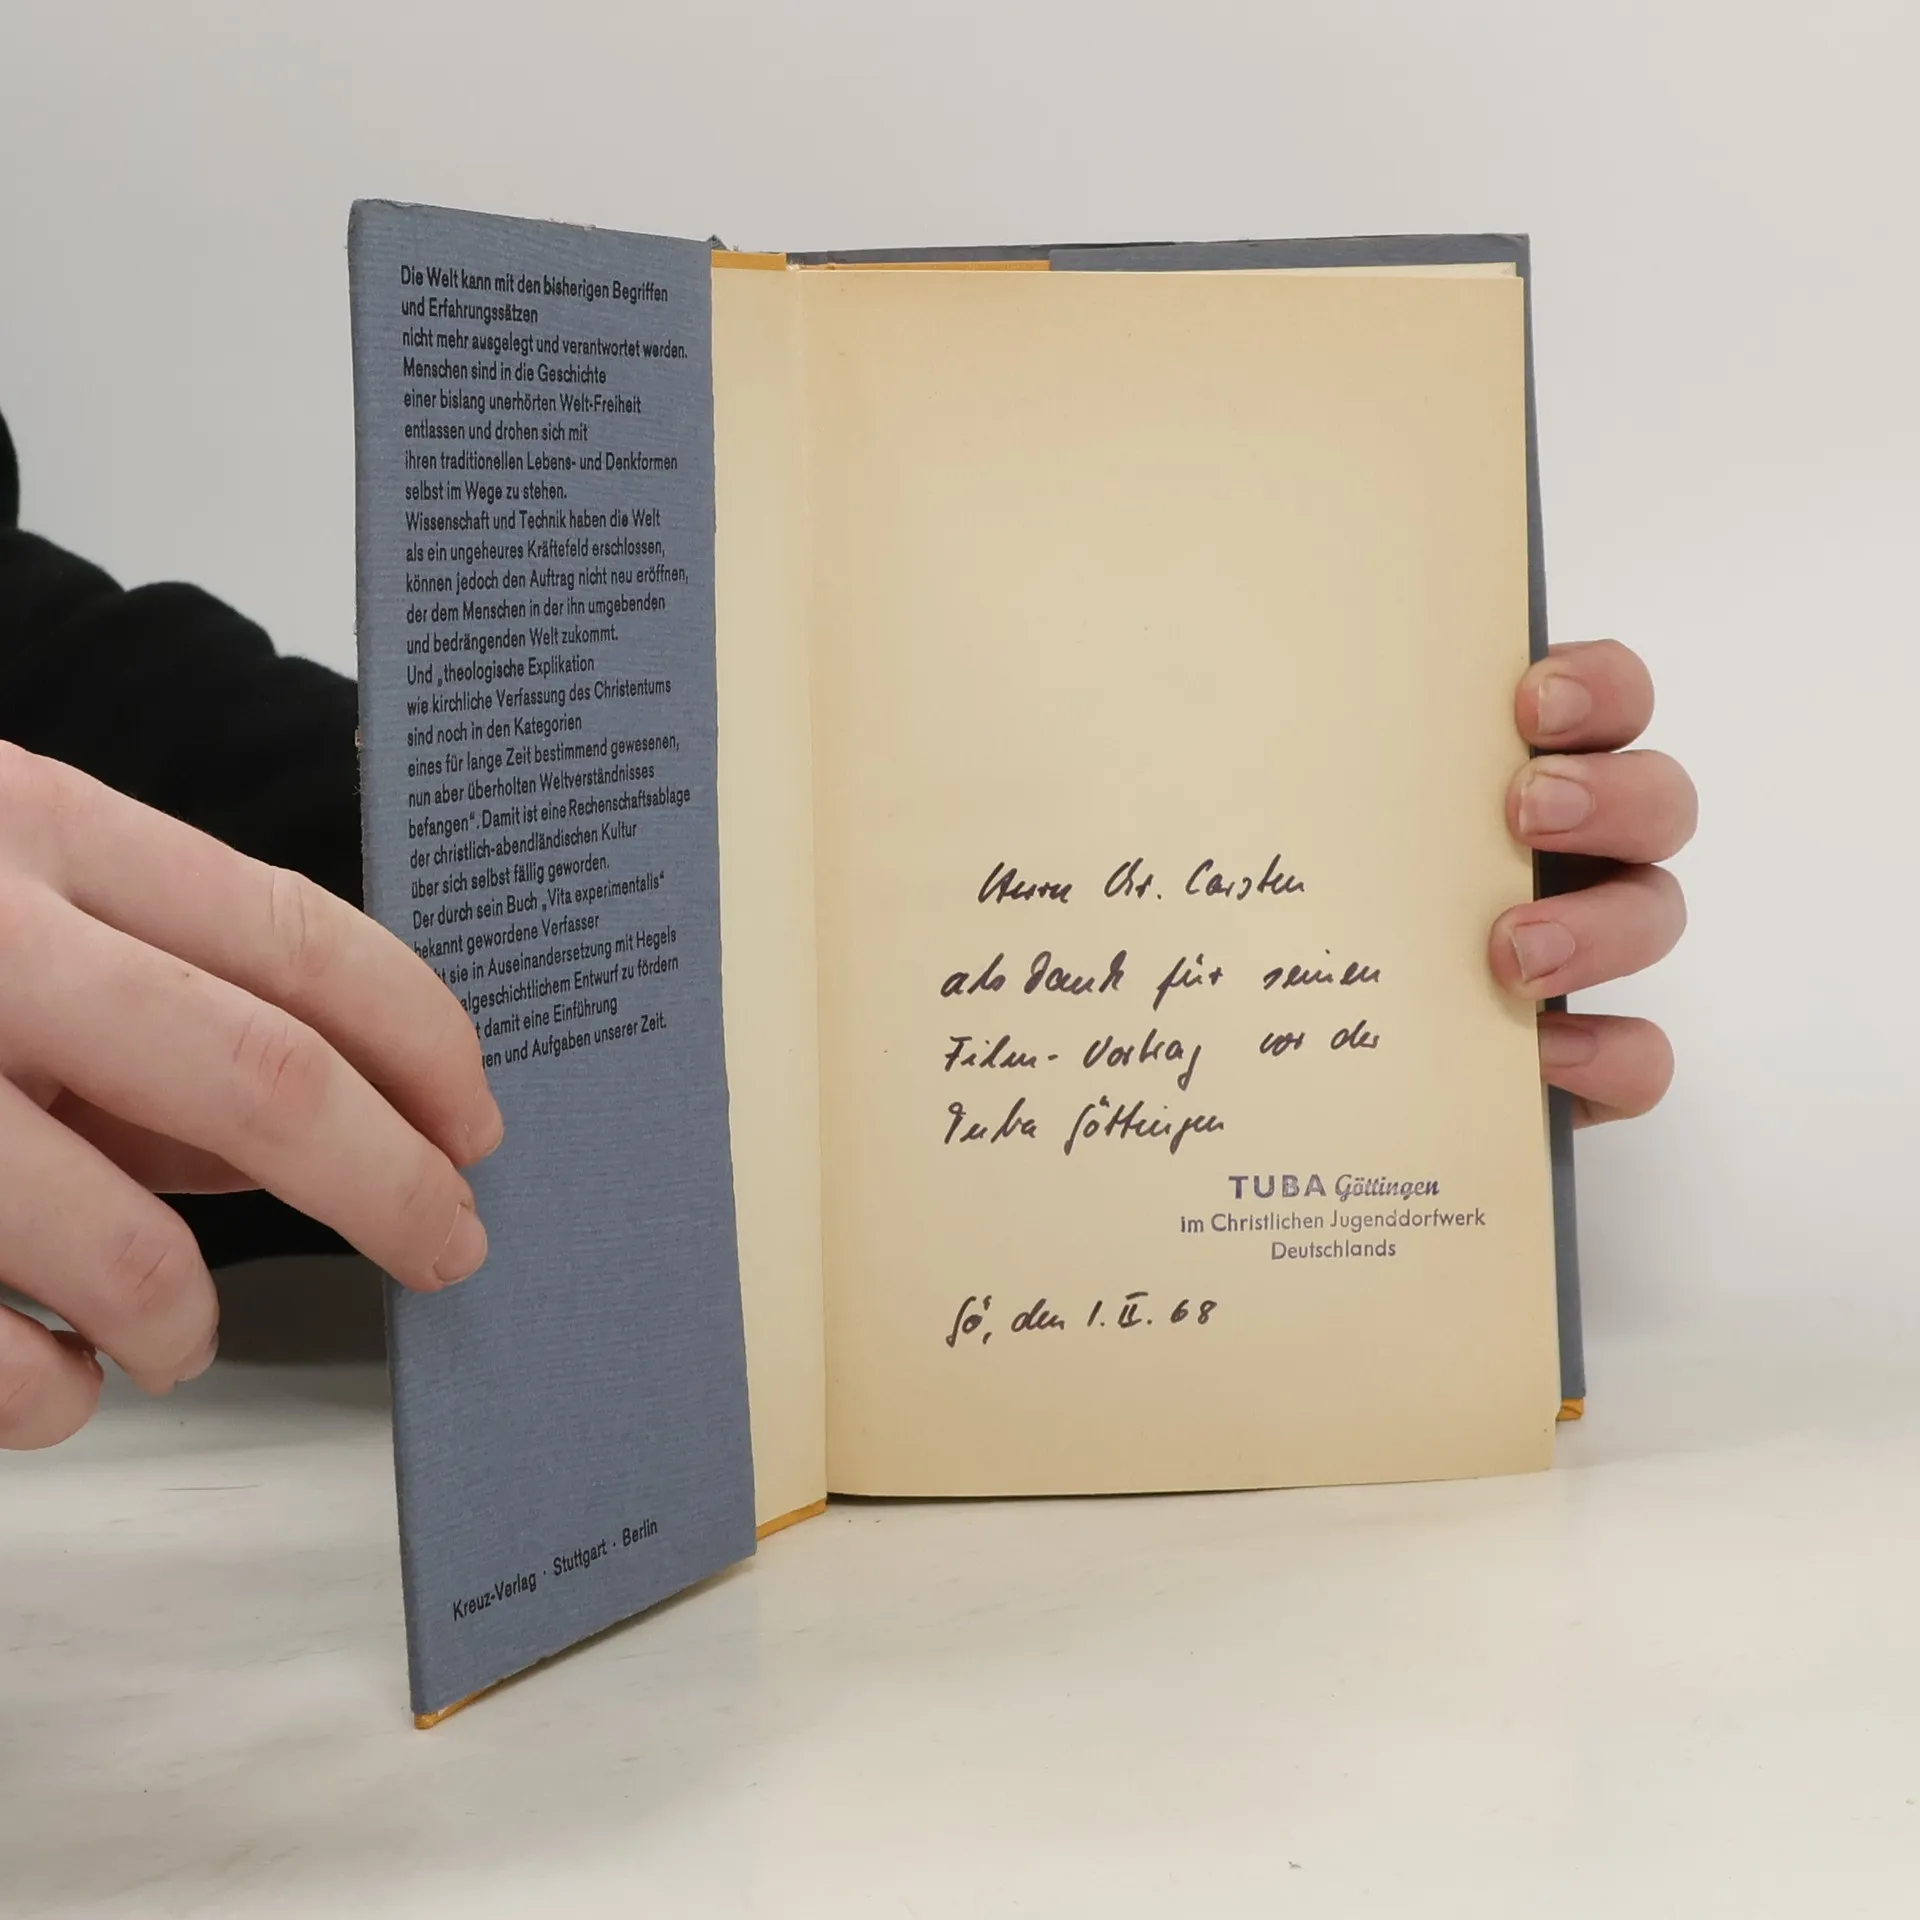 Die Welt kann mit den bisherigen Begriffen
und Erfahrungssätzen
nicht mehr ausgelegt und verantwortet werden.
Menschen sind in die Geschichte
einer bislang unerhörten Welt-Freiheit
entlassen und drohen sich mit
ihren traditionellen Lebens- und Denkformen
selbst im Wege zu stehen.
Wissenschaft und Technik haben die Welt
als ein ungeheures Kräftefeld erschlossen,
können jedoch den Auftrag nicht neu eröffnen,
der dem Menschen in der ihn umgebenden
und bedrängenden Welt zukommt.
Und „theologische Explikation
wie kirchliche Verfassung des Christentums
sind noch in den Kategorien
eines für lange Zeit bestimmend gewesenen,
nun aber überholten Weltverständnisses
befangen“. Damit ist eine Rechenschaftsablage
der christlich-abendländischen Kultur
über sich selbst fällig geworden.
Der durch sein Buch „Vita experimentalis“
bekannt gewordene Verfasser
sie in Auseinandersetzung mit Hegels
algeschichtlichem Entwurf zu fördern
damit eine Einführung
und Aufgaben unserer Zeit.
Kreuz-Verlag · Stuttgart · Berlin
Herrn Chr. Carsten
als Dank für seinen
Film-Vortrag vor der
Tuba Göttingen
TUBA Göttingen
im Christlichen Jugenddorfwerk
Deutschlands
Gö, den 1. II. 68